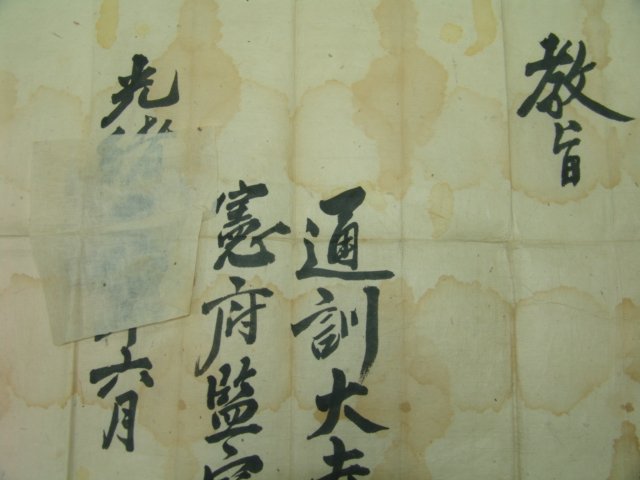 教旨
通訓大夫
憲府監察
光緒
年六月